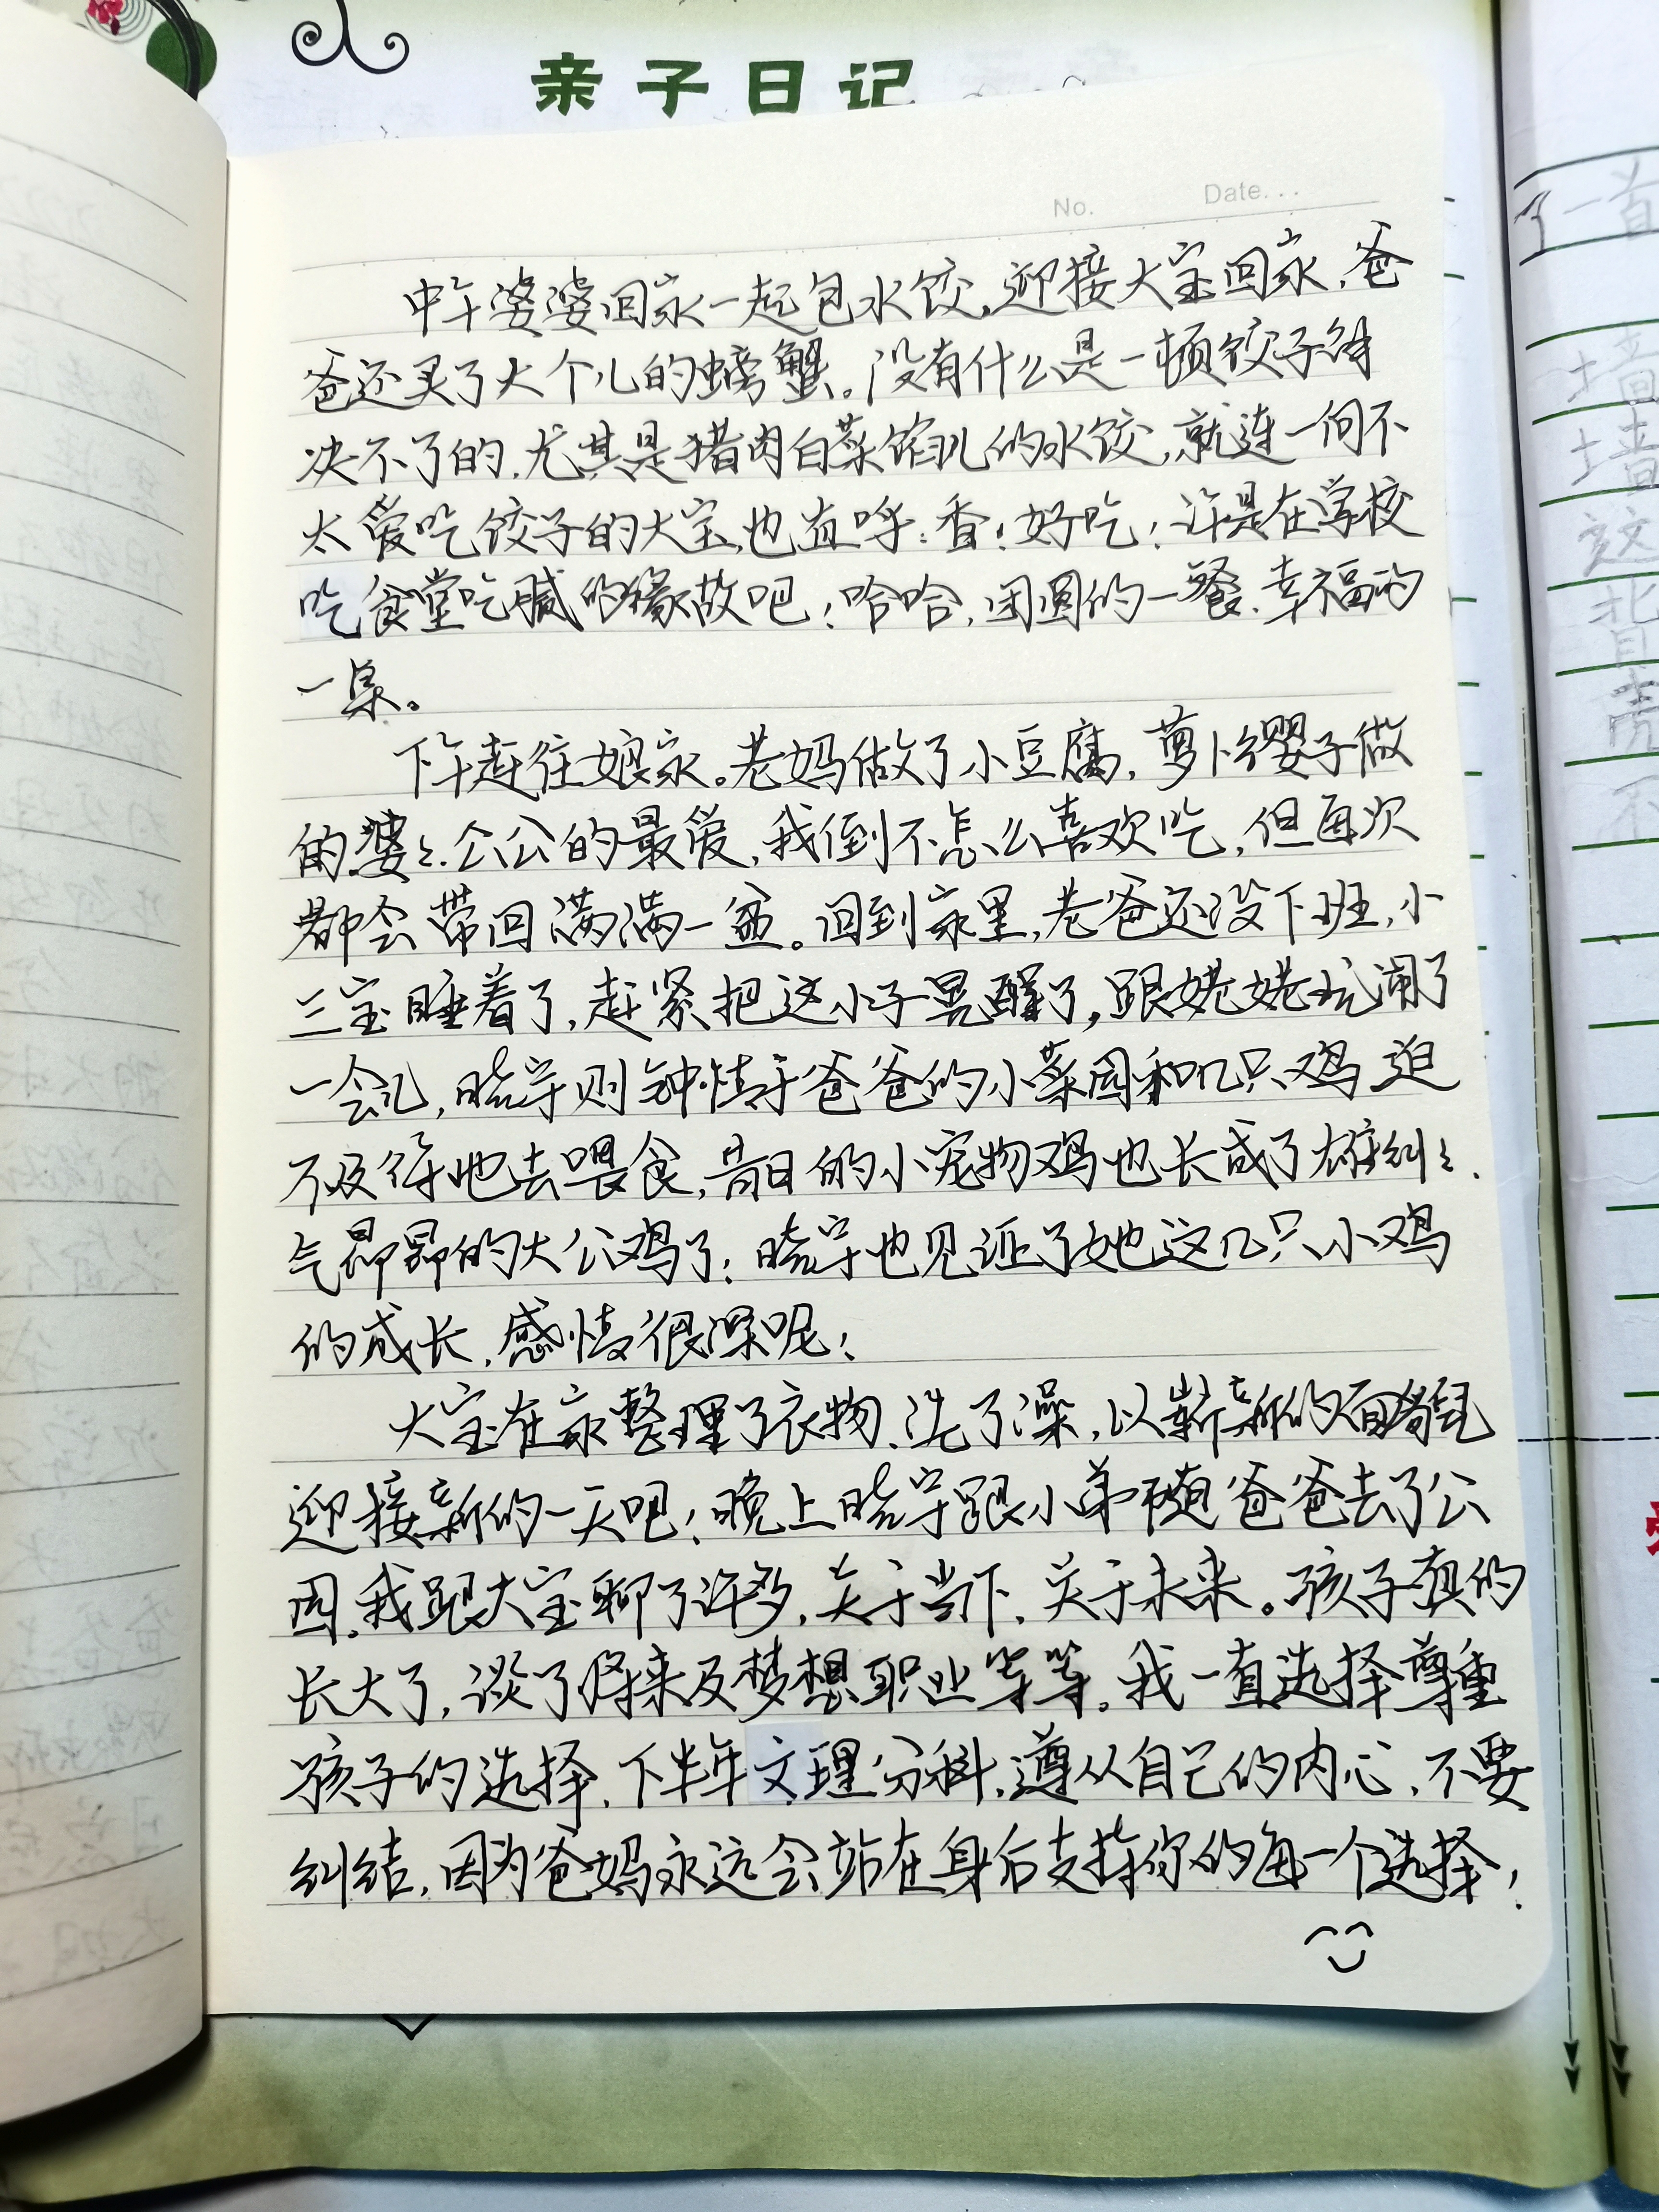 亲子日记
No. Date...
中午婆婆回家一起包水饺,迎接大宝回家,爸
爸还买了大个儿的螃蟹。没有什么是一顿饺子解
决不了的,尤其是猪肉白菜馅儿的水饺,就连一向不
太爱吃饺子的大宝,也直呼:香!好吃!许是在学校
吃食堂吃腻的缘故吧!哈哈,团圆的一餐,幸福的
一桌。
下午赶往娘家。老妈做了小豆腐,萝卜缨子做
的,婆婆、公公的最爱,我倒不怎么喜欢吃,但每次
都会带回满满一盆。回到家里,老爸还没下班,小
三宝睡着了,赶紧把这小子晃醒了,跟姥姥玩闹了
一会儿,晗宇则钟情于爸爸的小菜园和几只鸡,迫
不及待地去喂食,昔日的小宠物鸡也长成了雄纠纠、
气昂昂的大公鸡了!晗宇也见证了她这几只小鸡
的成长,感情很深呢!
大宝在家整理了衣物、洗了澡,以崭新的面貌
迎接新的一天吧!晚上晗宇跟小弟随爸爸去了公
园,我跟大宝聊了许多,关于当下、关于未来。孩子真的
长大了,谈了将来及梦想职业等等。我一直选择尊重
孩子的选择,下半年文理分科,遵从自己的内心,不要
纠结,因为爸妈永远会站在身后支持你的每一个选择!
了一首
墙
墙
这
背
壳
不